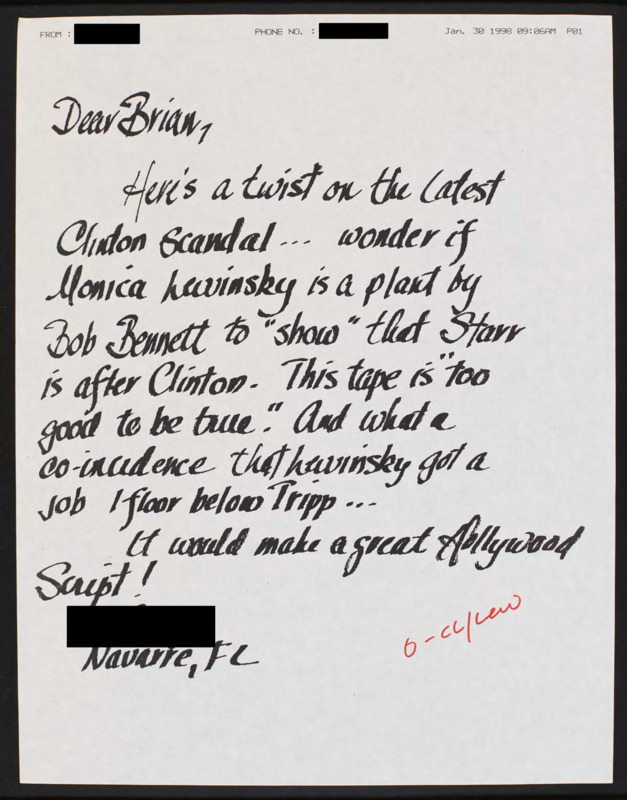 FROM :
PHONE NO. :
Jan. 30 1998 09:06AM P01
Dear Brian,
Here's a twist on the latest
Clinton Scandal... wonder if
Monica Lewinsky is a plant by
Bob Bennett to "show" that Starr
is after Clinton. This tape is "too
good to be true." And what a
co-incidence that Lewinsky got a
job 1 floor below Tripp...
It would make a great Hollywood
Script!
Navarre, FL